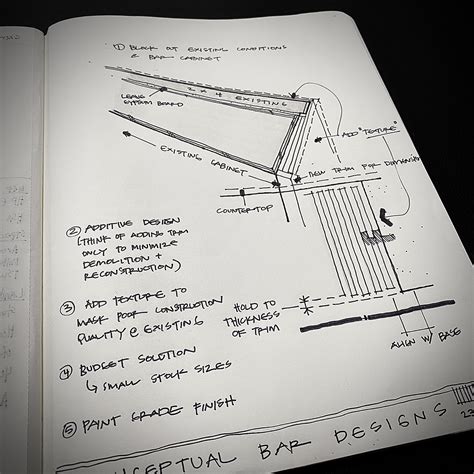 ① BLOCK OUT EXISTING CONDITIONS
& BAR CABINET
2 x 4 EXISTING
LEAVE
GYPSUM BOARD
ADD "TEXTURE"
EXISTING CABINET
NEW TRIM FOR DIMENSION
COUNTERTOP
② ADDITIVE DESIGN
(THINK OF ADDING TRIM
ONLY TO MINIMIZE
DEMOLITION +
RECONSTRUCTION)
③ ADD TEXTURE TO
MASK POOR CONSTRUCTION
QUALITY @ EXISTING
HOLD TO
THICKNESS
OF TRIM
④ BUDGET SOLUTION
↳ SMALL STOCK SIZES
ALIGN W/ BASE
⑤ PAINT GRADE FINISH
NCEPTUAL BAR DESIGNS